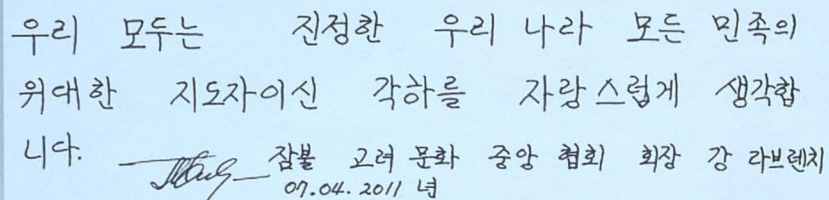 우리 모두는 진정한 우리 나라 모든 민족의
위대한 지도자이신 각하를 자랑스럽게 생각합
니다.
잠불 고려 문화 중앙 협회 회장 강 라브렌치
07.04.2011 년